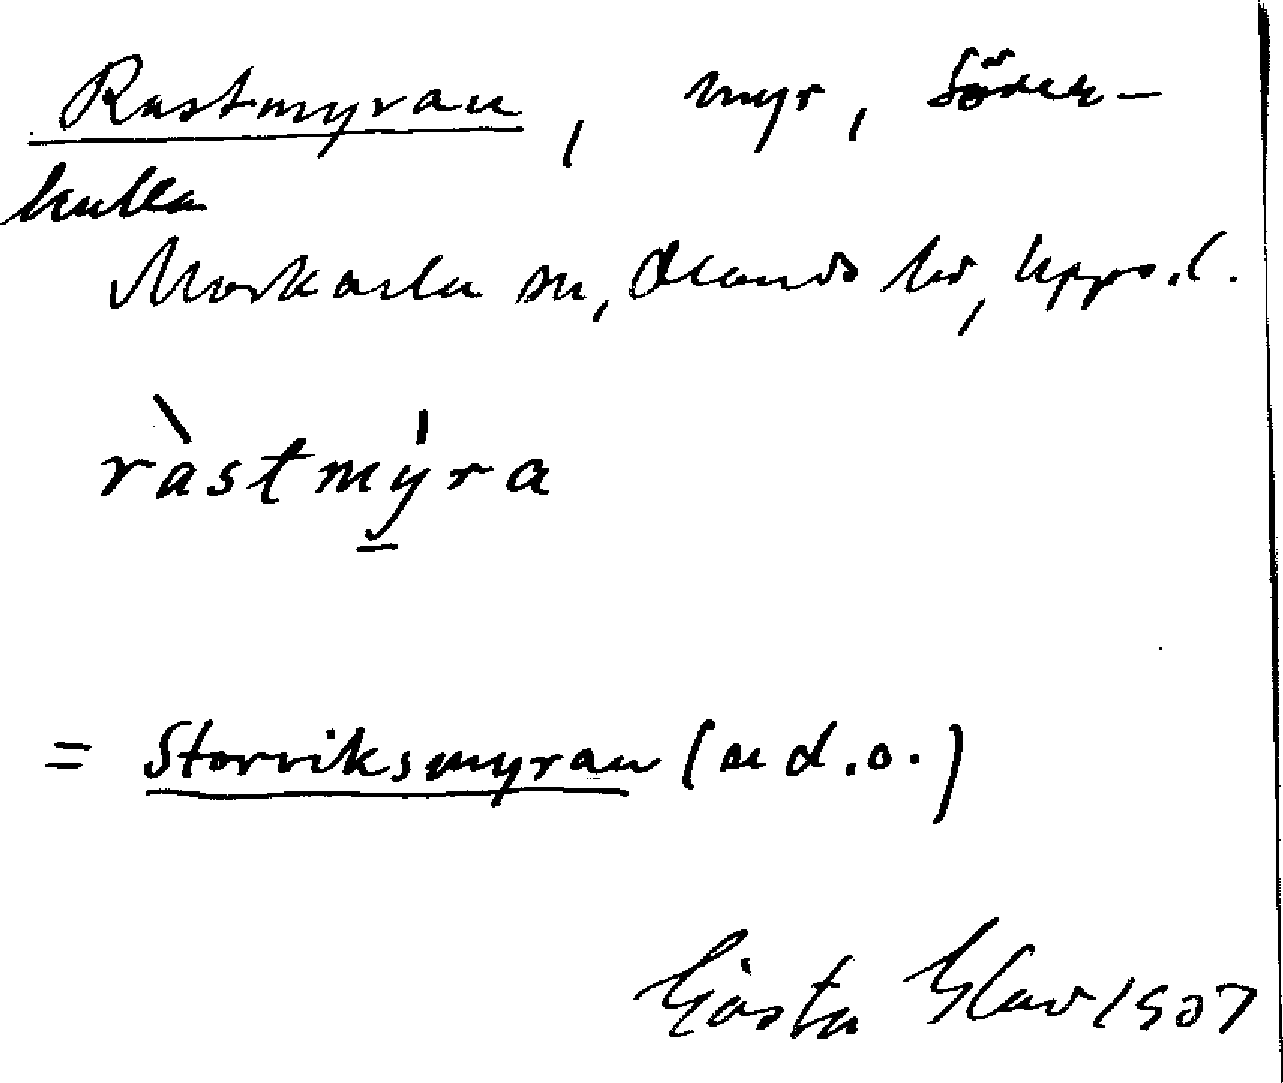 Rastmyran, myr, Söder-
kulla
Morkarla sn, Olands hd, Upps. l.
ràstmý̱ra
= Storviksmyran (u d.o.)
Gösta 1907